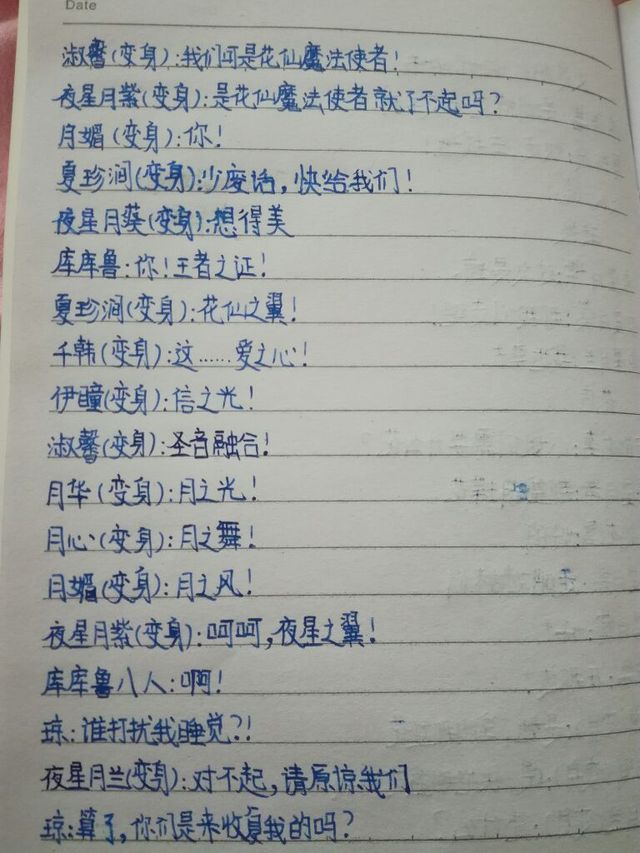 Date
淑馨(变身):我们可是花仙魔法使者!
夜星月紫(变身):是花仙魔法使者就了不起吗?
月媚(变身):你!
夏珍涧(变身):少废话,快给我们!
夜星月葵(变身):想得美
库库鲁:你!王者之证!
夏珍涧(变身):花仙之翼!
千韩(变身):这……爱之心!
伊瞳(变身):信之光!
淑馨(变身):圣音融合!
月华(变身):月之光!
月心(变身):月之舞!
月媚(变身):月之风!
夜星月紫(变身):呵呵,夜星之翼!
库库鲁八人:啊!
琼:谁打扰我睡觉?!
夜星月兰(变身):对不起,请原谅我们
琼:算了,你们是来收复我的吗?